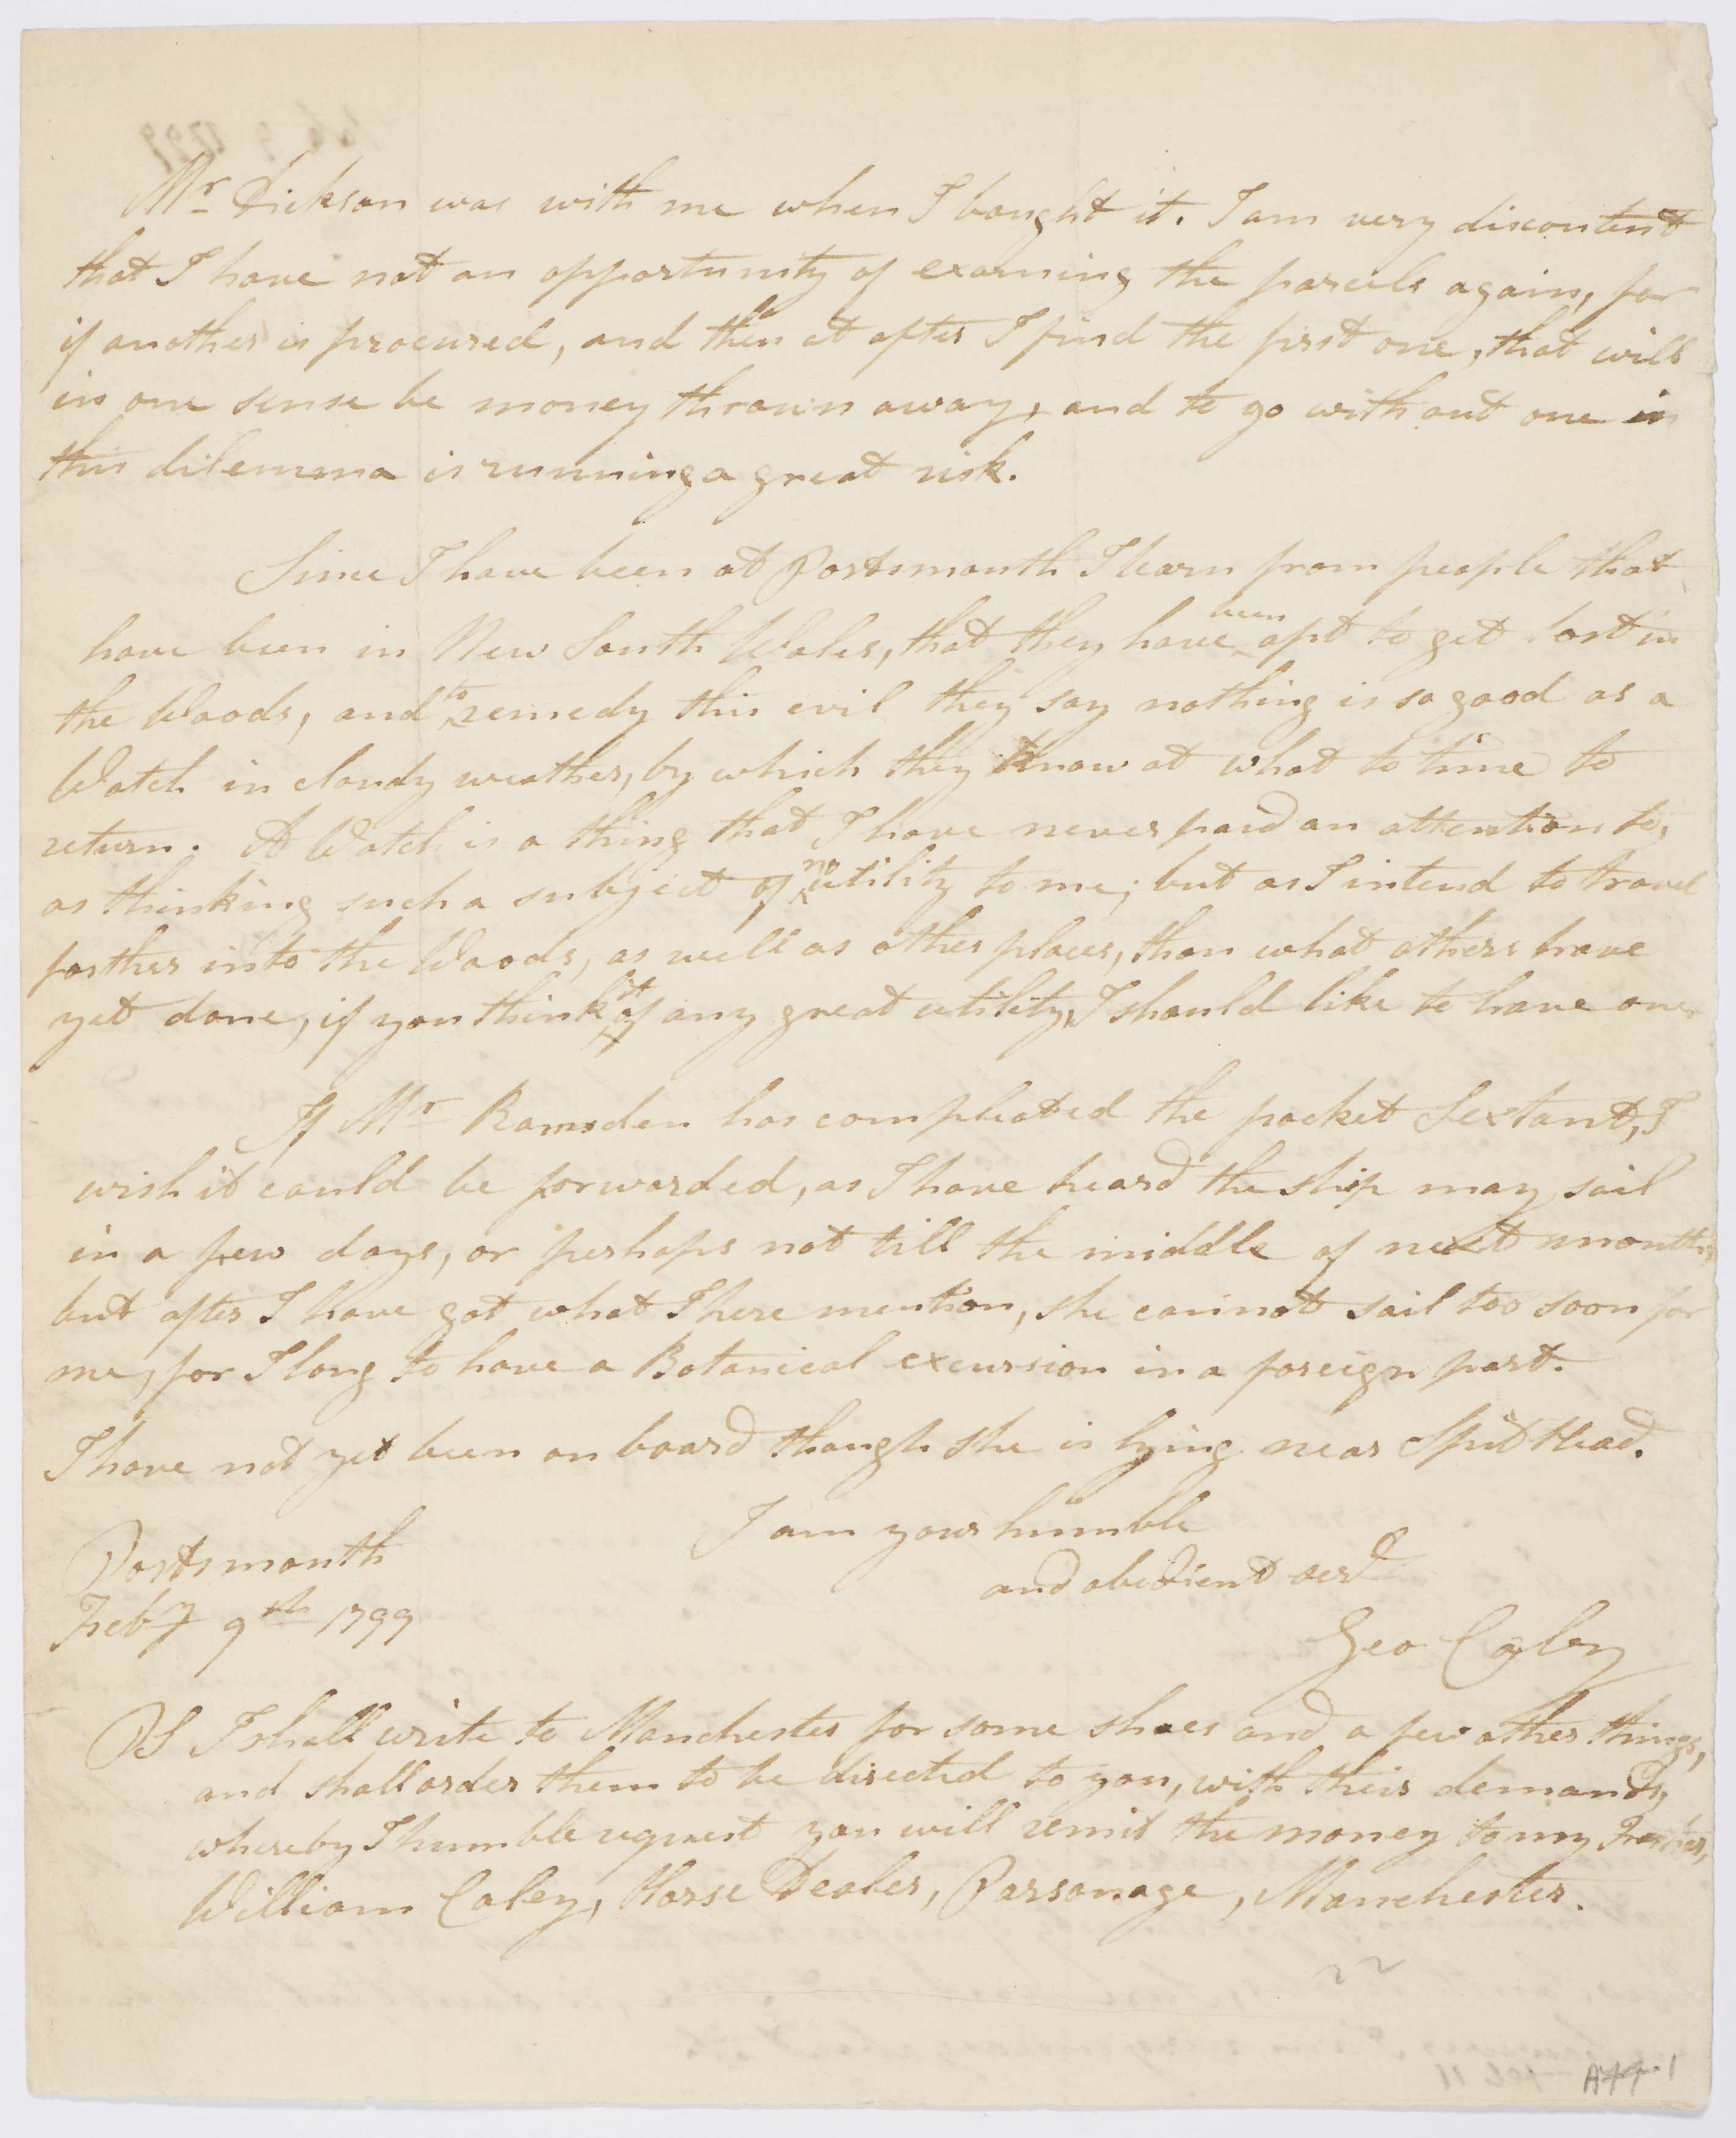 Mr Dickson was with me when I bought it. I am very discontent
that I have not an opportunity of examing the parcels again, for
if another is procured, and then at after I find the first one, that will
in one sense be money thrown away, and to go without one in
this dilemma is running a great risk.
Since I have been at Portsmouth I learn from people that
have been in New South Wales, that they have been apt to get lost in
the Woods, and to remedy this evil they say nothing is so good as a
Watch in cloudy weather, by which they know at what to time to
return. A Watch is a thing that I have never paid an attention to,
as thinking such a subject of no utility to me; but as I intend to travel
farther into the Woods, as well as other places, than what others have
yet done, if you think it of any great utility, I should like to have one.
If Mr Ramsden has compleated the pocket Sextant, I
wish it could be forwarded, as I have heard the ship may sail
in a few days, or perhaps not till the middle of next month,
but after I have got what I here mention, she cannot sail too soon for
me, for I long to have a Botanical excursion in a foreign part.
I have not yet been on board though she is lying near Spit Head.
I am your humble
and obedient servt
Portsmouth
Feby 9th 1799
Geo Caley
PS I shall write to Manchester for some shoes and a few other things,
and shall order them to be directed to you, with their demands,
whereby I humble request you will remit the money to my
William Caley, Horse Dealer, Parsonage, Manchester.